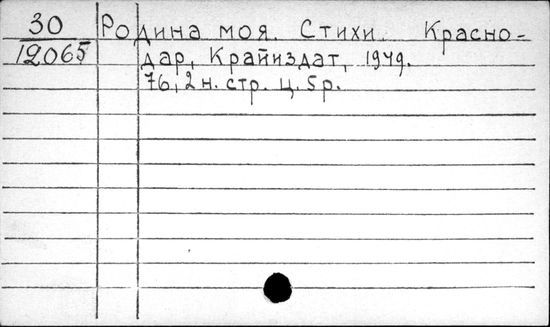 30 Родина моя. Стихи. Красно-
12065 дар, Крайиздат, 1949.
76, 2 н. стр. ц. 5 р.